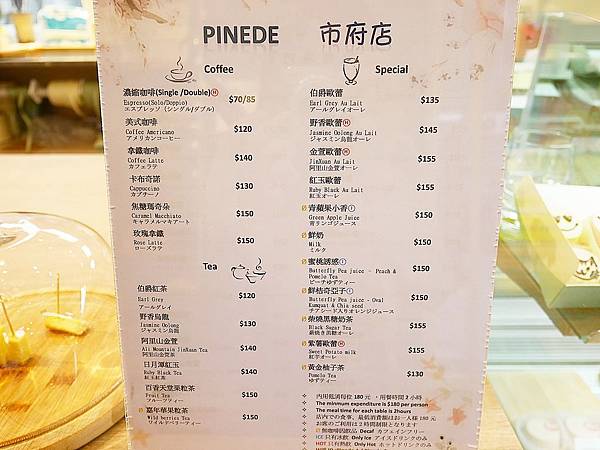 PINEDE 市府店
Coffee
濃縮咖啡(Single /Double)Ⓗ
Espresso(Solo/Doppio) $70/85
エスプレッソ (シングル/ダブル)
美式咖啡
Coffee Americano $120
アメリカンコーヒー
拿鐵咖啡
Coffee Latte $140
カフェラテ
卡布奇諾
Cappuccino $130
カプチーノ
焦糖瑪奇朵
Caramel Macchiato $150
キャラメルマキアート
玫瑰拿鐵
Rose Latte $150
ローズラテ
Tea
伯爵紅茶
Earl Grey $120
アールグレイ
野香烏龍
Jasmine Oolong $130
ジャスミン烏龍
阿里山金萱
Ali Mountain JinXuan Tea $140
阿里山金萱茶
日月潭紅玉
Ruby Black Tea $140
紅玉紅茶
百香天堂果粒茶
Fruit Tea $150
フルーツティー
嘉年華果粒茶
Wild berries Tea $150
ワイルドベリーティー
Special
伯爵歐蕾
Earl Grey Au Lait $135
アールグレイオーレ
野香歐蕾Ⓗ
Jasmine Oolong Au Lait $145
ジャスミン烏龍オーレ
金萱歐蕾Ⓗ
JinXuan Au Lait $155
阿里山金萱オーレ
紅玉歐蕾
Ruby Black Au Lait $155
紅玉オーレ
青蘋果小香Ⓘ
Green Apple Juice $150
青リンゴジュース
鮮奶
Milk $150
ミルク
蜜桃誘惑Ⓘ
Butterfly Pea juice – Peach & $150
Pomelo Tea
ピーチゆずティー
鮮桔奇亞子Ⓘ
Butterfly Pea juice - Oval $150
Kumquat & Chia seed
チアシード入りオレンジジュース
柴燒黑糖奶茶
Black Sugar Tea $155
薪焼き黒糖オーレ
紫薯歐蕾Ⓗ
Sweet Potato milk $155
紅芋オーレ
黃金柚子茶
Pomelo Tea $130
ゆずティー
內用低消每位 180 元 ，用餐時間 2 小時
The minmum expenditure is $180 per person
The meal time for each table is 2hours
店内での食事、最低消費額はお一人様 180 元
お席のご利用は 2 時間制限となります
無咖啡因飲品 Decaf カフェインフリー
ICE只有冰飲 Only Ice アイスドリンクのみ
HOT只有熱飲 Only Hot ホットドリンクのみ